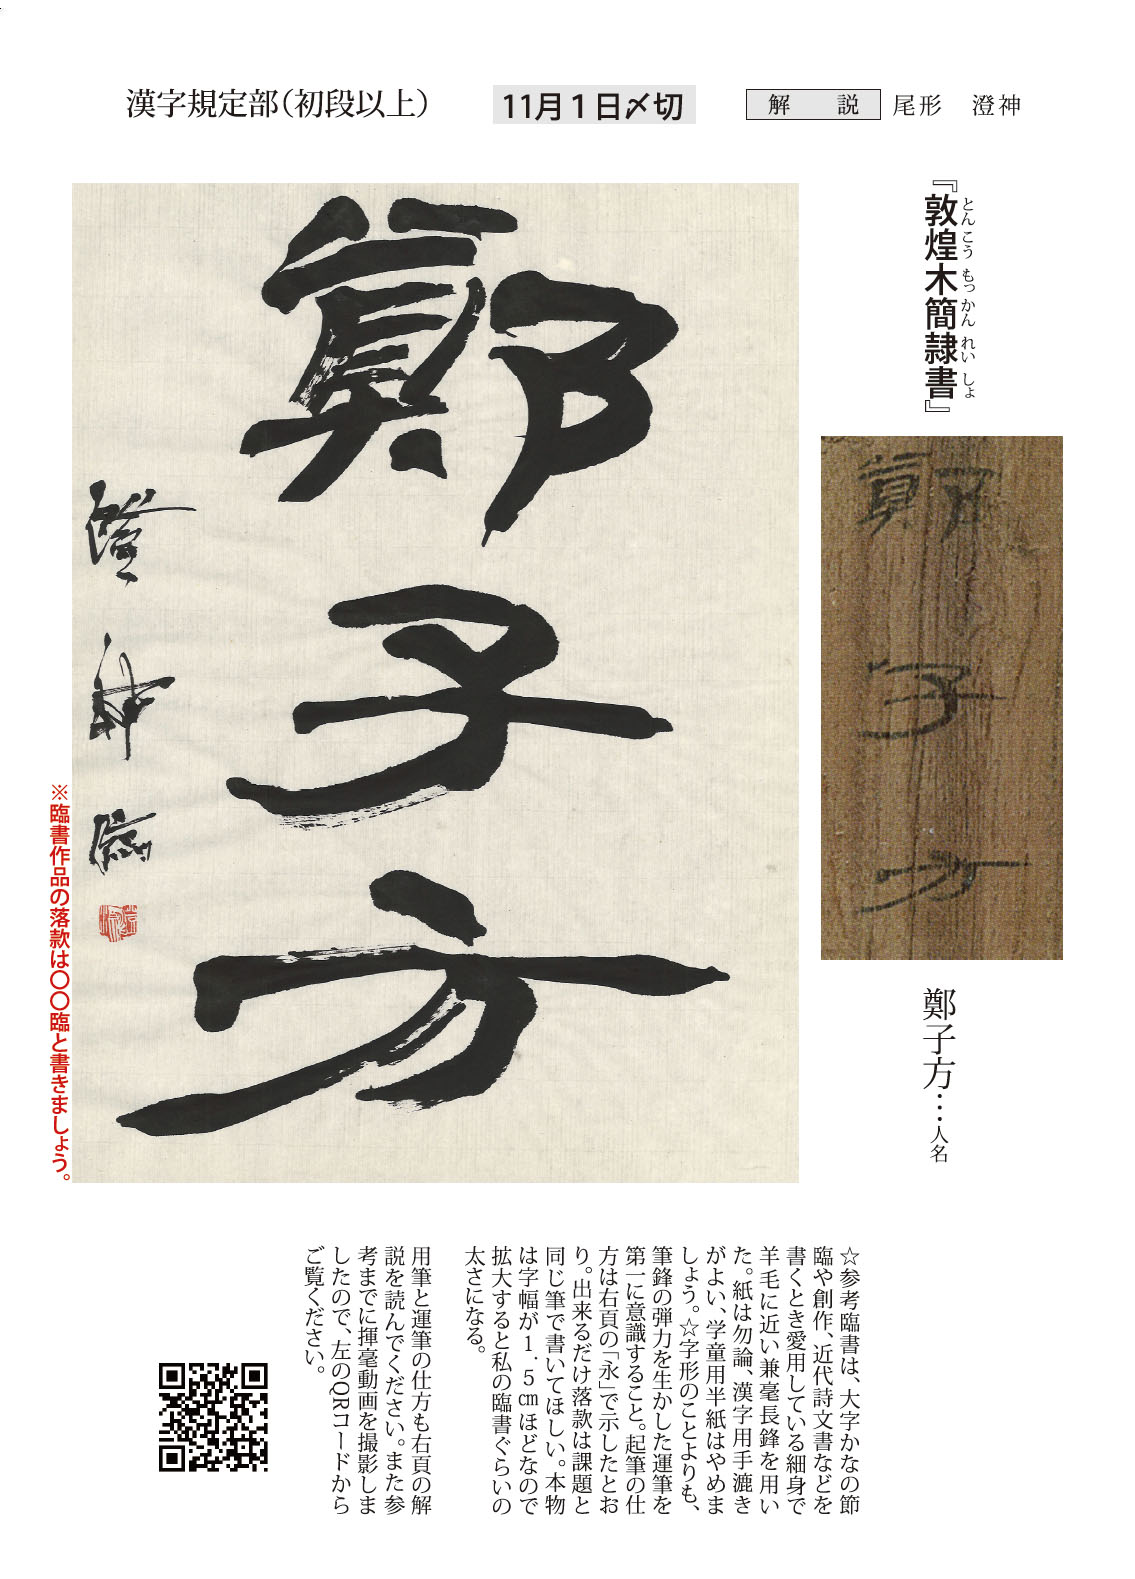 漢字規定部（初段以上）
11月１日〆切
解　説
尾形　澄神
『敦煌木簡隷書』
とんこう もっかん れいしょ
鄭子方
鄭子方
澄神臨
鄭子方…人名
※臨書作品の落款は〇〇臨と書きましょう。
☆参考臨書は、大字かなの節
臨や創作、近代詩文書などを
書くとき愛用している細身で
羊毛に近い兼毫長鋒を用い
た。紙は勿論、漢字用手漉き
がよい、学童用半紙はやめま
しょう。☆字形のことよりも、
筆鋒の弾力を生かした運筆を
第一に意識すること。起筆の仕
方は右頁の「永」で示したとお
り。出来るだけ落款は課題と
同じ筆で書いてほしい。本物
は字幅が１.５㎝ほどなので
拡大すると私の臨書ぐらいの
太さになる。
用筆と運筆の仕方も右頁の解
説を読んでください。また参
考までに揮毫動画を撮影しま
したので、左のQRコードから
ご覧ください。